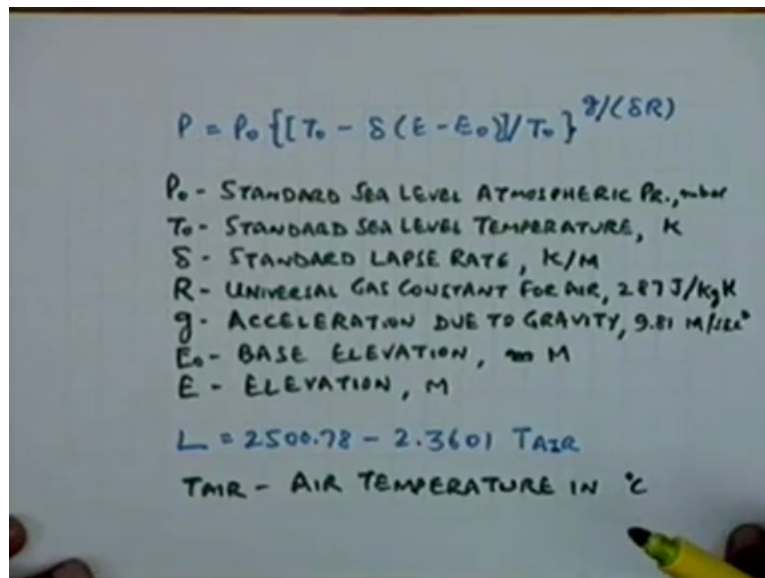 P = P₀ {[T₀ - δ(E - E₀)]/T₀}^g/(δR)
P₀ - STANDARD SEA LEVEL ATMOSPHERIC PR., mbar
T₀ - STANDARD SEA LEVEL TEMPERATURE, K
δ - STANDARD LAPSE RATE, K/M
R - UNIVERSAL GAS CONSTANT FOR AIR, 287 J/KgK
g - ACCELERATION DUE TO GRAVITY, 9.81 M/sec²
E₀ - BASE ELEVATION, M
E - ELEVATION, M
L = 2500.78 - 2.3601 TAIR
TAIR - AIR TEMPERATURE IN °C